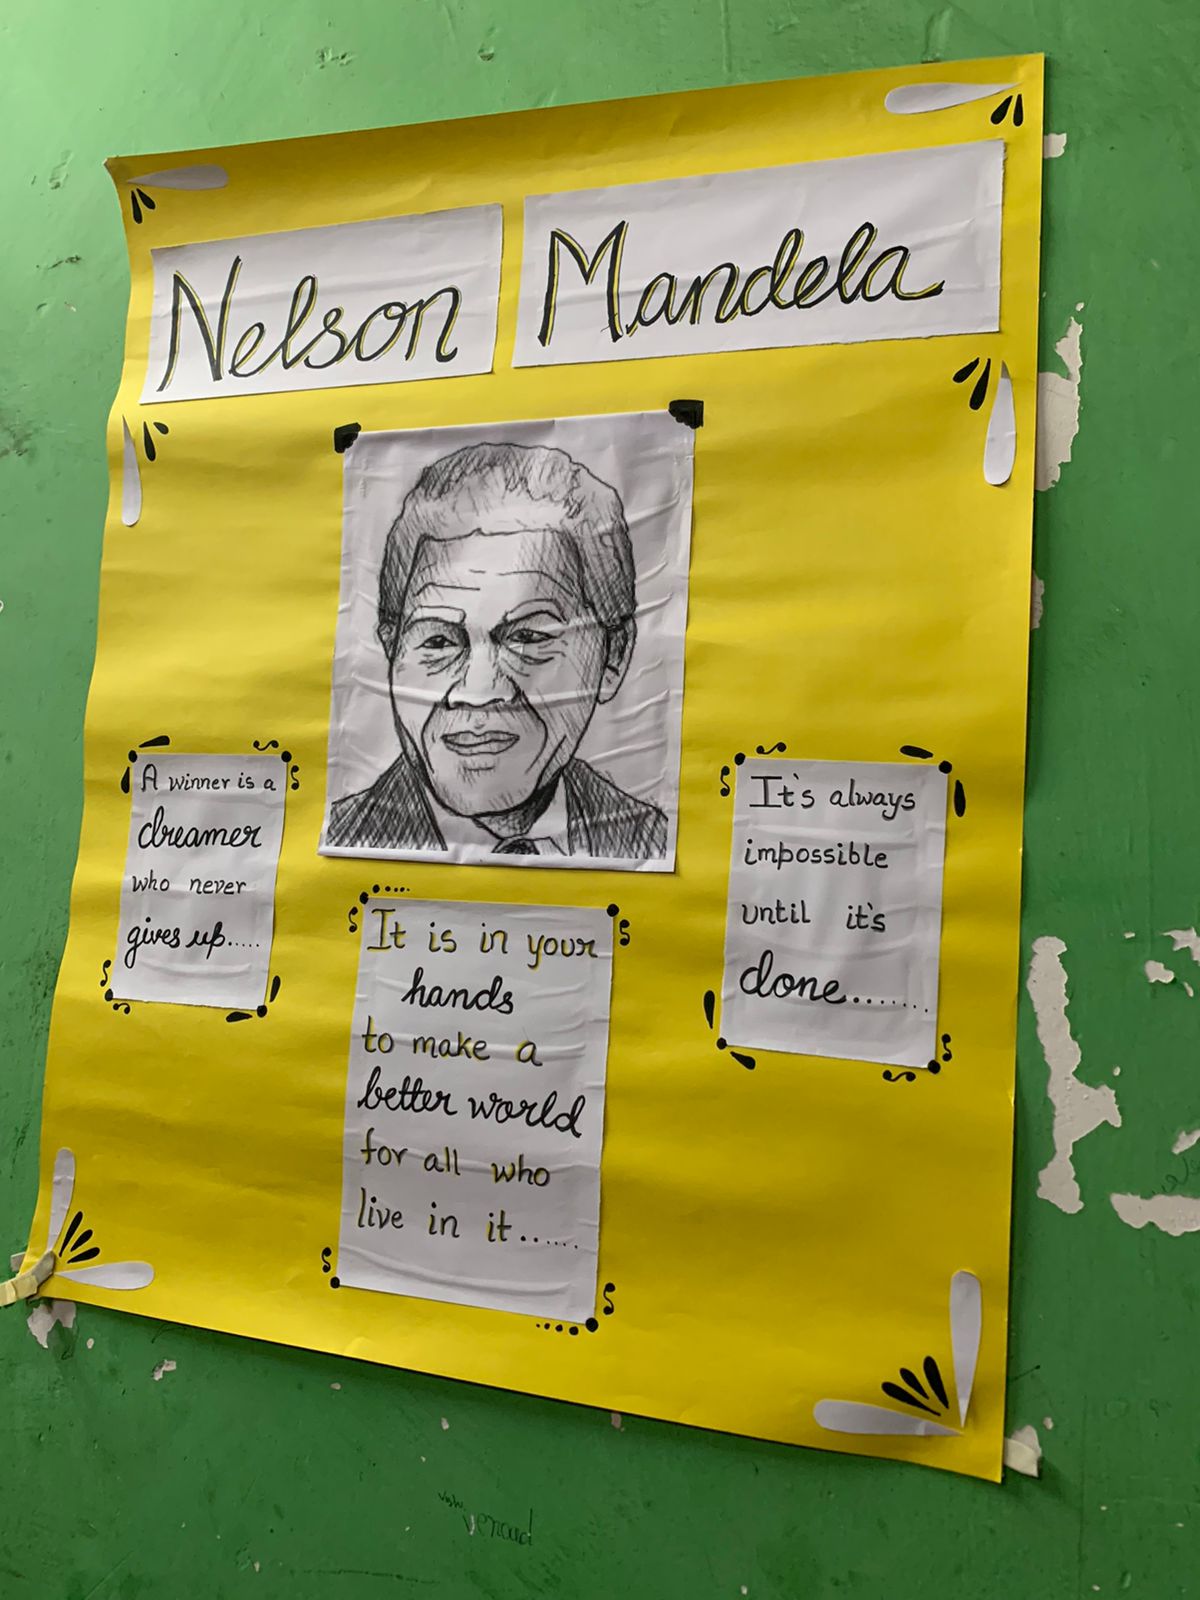 Nelson Mandela
A winner is a
dreamer
who never
gives up.....
It is in your
hands
to make a
better world
for all who
live in it......
It's always
impossible
until it's
done.......